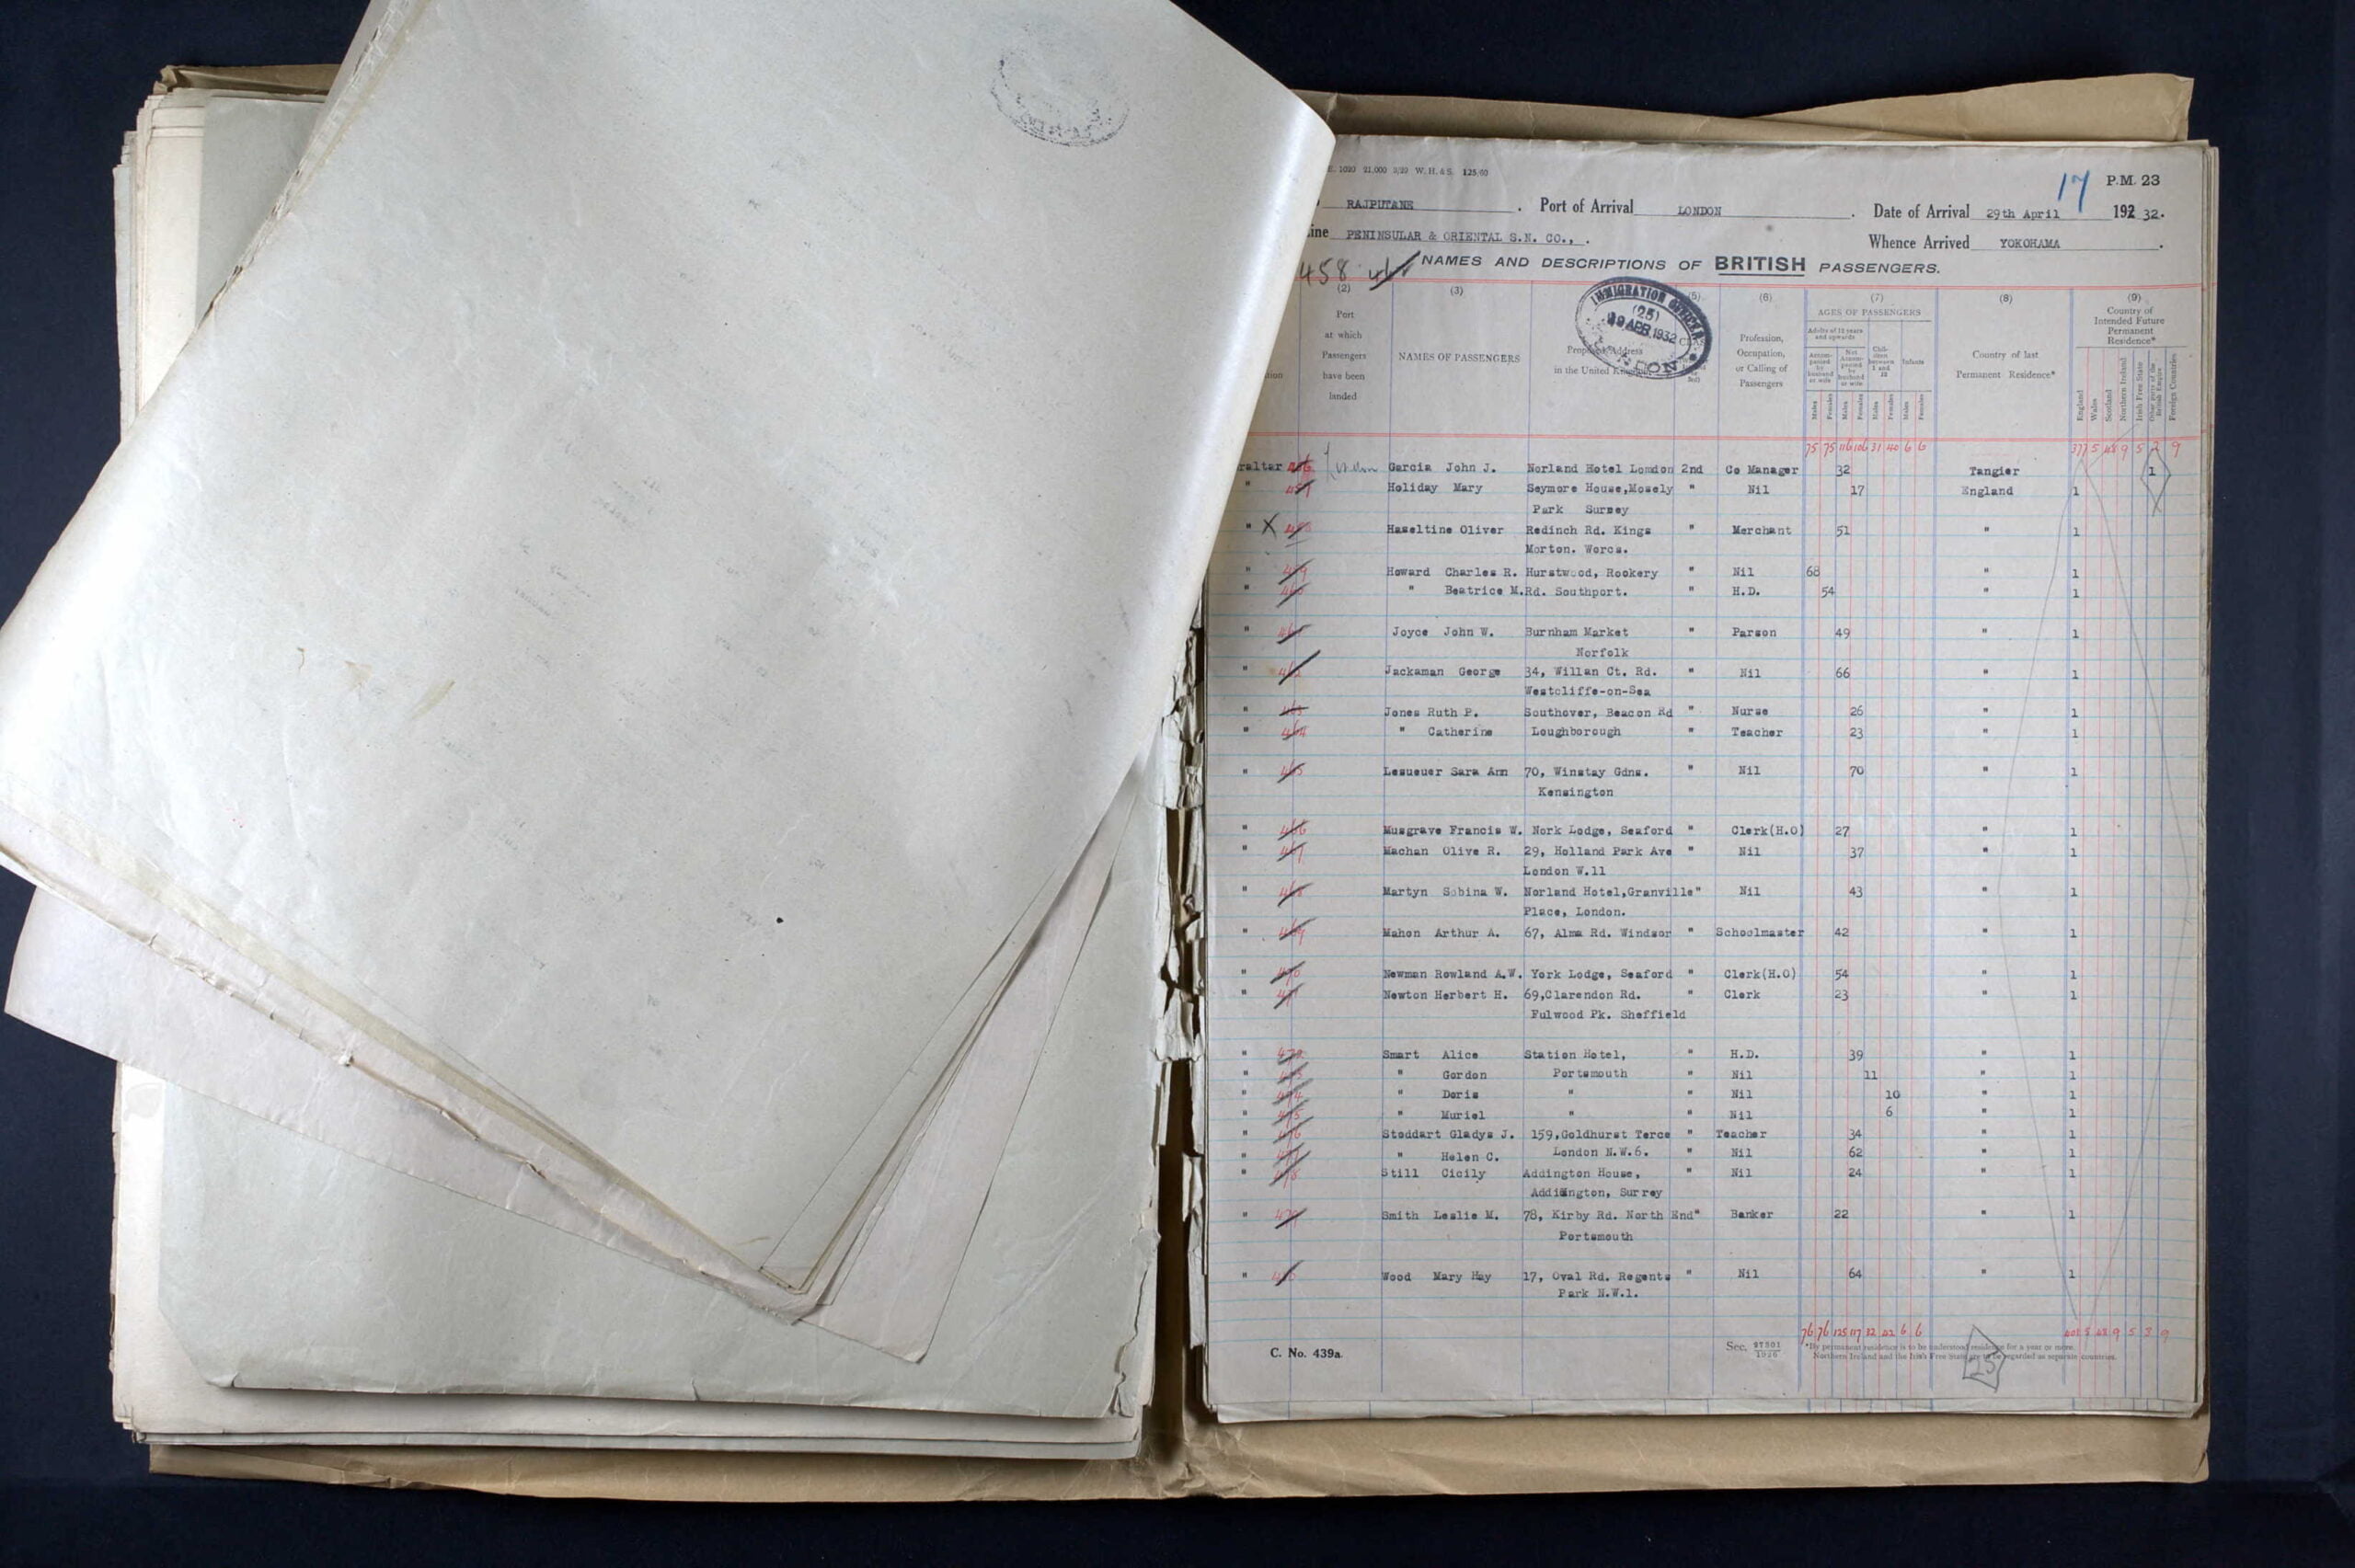 E. 1020 21,000 3/29 W. H. & S. 125/60
17 P.M. 23
RAJPUTANE . Port of Arrival LONDON . Date of Arrival 29th April 192 32.
ine PENINSULAR & ORIENTAL S.N. CO., . Whence Arrived YOKOHAMA .
458
NAMES AND DESCRIPTIONS OF BRITISH PASSENGERS.
(2) (3) (5) (6) (7) (8) (9)
IMMIGRATION OFFICER
(25)
29 APR 1932
LONDON
Port
at which
Passengers
have been
landed
NAMES OF PASSENGERS
Proposed Address
in the United Kingdom
Profession,
Occupation,
or Calling of
Passengers
AGES OF PASSENGERS
Adults of 12 years
and upwards
Accom-
panied
by
husband
or wife
Not
Accom-
panied
by
husband
or wife
Chil-
dren
between
1 and
12
Infants
Males Females Males Females Males Females Males Females
Country of last
Permanent Residence*
Country of
Intended Future
Permanent
Residence*
England Wales Scotland Northern Ireland Irish Free State Other parts of the British Empire Foreign Countries
75 75 116 106 31 40 6 6 377 5 48 9 5 2 9
raltar Garcia John J. Norland Hotel London 2nd Co Manager 32 Tangier 1
" Holiday Mary Seymore House,Mosely " Nil 17 England 1
Park Surrey
" X Haseltine Oliver Redinch Rd. Kings " Merchant 51 " 1
Morton. Worcs.
" Howard Charles R. Hurstwood, Rookery " Nil 68 " 1
" " Beatrice M. Rd. Southport. " H.D. 54 " 1
" Joyce John W. Burnham Market " Parson 49 " 1
Norfolk
" Jackaman George 34, Willan Ct. Rd. " Nil 66 " 1
Westcliffe-on-Sea
" Jones Ruth P. Southover, Beacon Rd " Nurse 26 " 1
" " Catherine Loughborough " Teacher 23 " 1
" Lesueuer Sara Ann 70, Winstay Gdns. " Nil 70 " 1
Kensington
" Musgrave Francis W. Nork Lodge, Seaford " Clerk(H.O) 27 " 1
" Machan Olive R. 29, Holland Park Ave " Nil 37 " 1
London W.11
" Martyn Sabina W. Norland Hotel,Granville" Nil 43 " 1
Place, London.
" Mahon Arthur A. 67, Alma Rd. Windsor " Schoolmaster 42 " 1
" Newman Rowland A.W. York Lodge, Seaford " Clerk(H.O) 54 " 1
" Newton Herbert H. 69,Clarendon Rd. " Clerk 23 " 1
Fulwood Pk. Sheffield
" Smart Alice Station Hotel, " H.D. 39 " 1
" " Gordon Portsmouth " Nil 11 " 1
" " Doris " " Nil 10 " 1
" " Muriel " " Nil 6 " 1
" Stoddart Gladys J. 159,Goldhurst Terce " Teacher 34 " 1
" " Helen C. London N.W.6. " Nil 62 " 1
" Still Cicily Addington House, " Nil 24 " 1
Addington, Surrey
" Smith Leslie M. 78, Kirby Rd. North End" Banker 22 " 1
Portsmouth
" Wood Mary Hay 17, Oval Rd. Regents " Nil 64 " 1
Park N.W.1.
76 76 125 117 32 42 6 6 401 5 48 9 5 3 9
C. No. 439a.
Sec. 27301/1926
*By permanent residence is to be understood residence for a year or more.
Northern Ireland and the Irish Free State are to be regarded as separate countries.
25